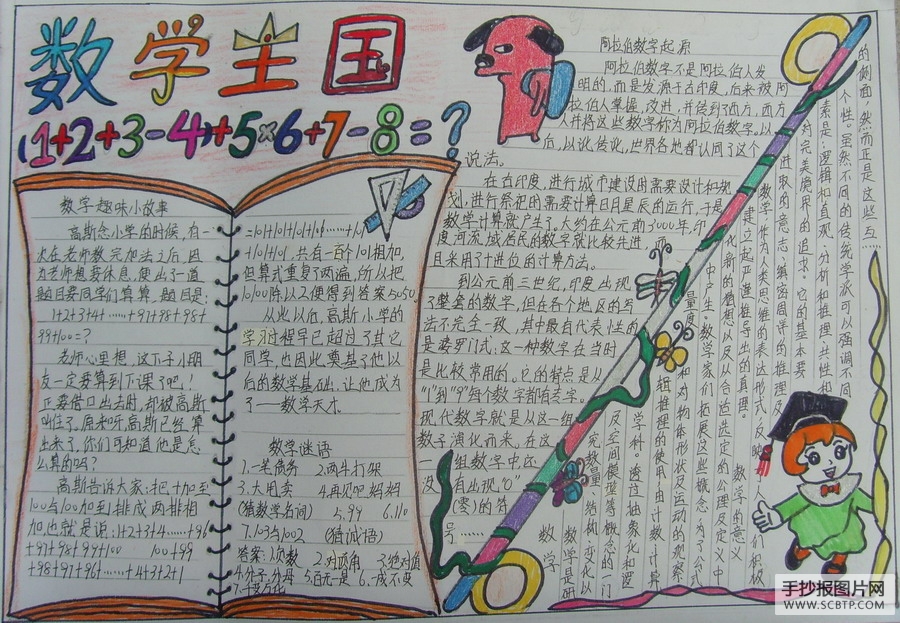 数学王国
(1+2+3-4)+5×6+7-8=?
数学趣味小故事
高斯念小学的时候,有一
次在老师教完加法之后,因
为老师想要休息,便出了一道
题目要同学们算算,题目是:
1+2+3+4……+97+98+99+100=?
老师心里想,这下子小朋
友一定要算到下课了吧!
正要借口出去时,却被高斯
叫住了,原来呀,高斯已经算
出来了,你们可知道他是怎
么算的吗?
高斯告诉大家:把1加至
100与100加至1排成两排相
加,也就是说:1+2+3+4……+96
+97+98+99+100 100+99
+98+97+96+……+4+3+2+1
=101+101+101+101+……+101
+101+101 共有一百个101相加,
但算式重复了两遍,所以把
10100除以2便得到答案5050.
从此以后,高斯小学的
学习过程早已超过了其它
同学,也因此奠基了他以
后的数学基础,让他成为
了——数学天才.
数学谜语
1.一笔债务 2.两牛打架
3.大甩卖 4.再见吧妈妈
(猜数学名词) 5.99 6.1:1
7.103与102 (猜成语)
答案:1.项数 2.对顶角 3.绝对值
4.分子、分母 5.百无一是 6.一成不变
7.千变万化
阿拉伯数字起源
阿拉伯数字不是阿拉伯人发
明的,而是发源于古印度,后来被阿
拉伯人掌握、改进,并传到了西方,西方
人并将这些数字称为阿拉伯数字。以
后,以讹传讹,世界各地都认同了这个
说法。
在古印度,进行城市建设时需要设计和规
划,进行祭祀时需要计算日月星辰的运行,于是
数学计算就产生了。大约在公元前3000年,印
度河流域居民的数字就比较先进,而
且采用了十进位的计算方法。
到公元前三世纪,印度出现
了整套的数字,但在各个地区的写
法不完全一致,其中最有代表性的
是婆罗门式:这一种数字在当时
是比较常用的。它的特点是从
“1”到“9”每个数字都有专字。
现代数字就是从这一组
数字演化而来。在这
一组数字中,还
没有出现“0”
(零)的符
号……
数学
数学是研
究数量、结构、变化以
及空间模型等概念的一门
学科。透过抽象化和逻
辑推理的使用,由计数、计算
量度和对物体形状及运动的观察
中产生。数学家们拓展这些概念,为了公式
化新的猜想以及从合适选定的公理及定义中
建立起严谨推导出的真理。
数学的意义
数学,作为人类思维的表达形式,反映了人们积极
进取的意志、缜密周详的推理及
对完美境界的追求。它的基本要
素是:逻辑和直观、分析和推理、共性和
个性。虽然不同的传统学派可以强调不同
的侧面,然而正是这些互……
手抄报图片网
WWW.SCBTP.COM